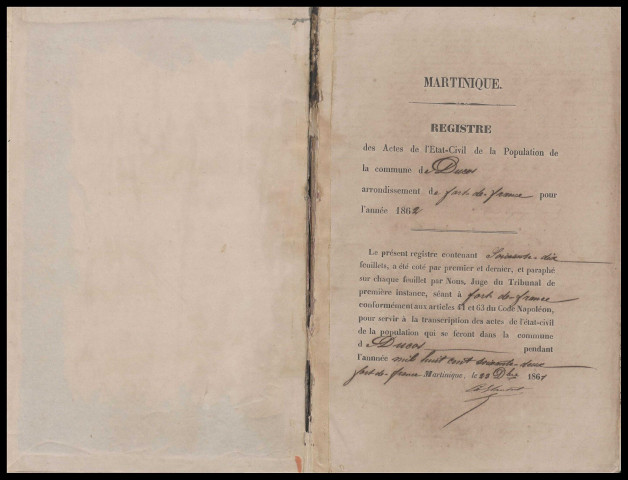 MARTINIQUE.
REGISTRE
des Actes de l'Etat-Civil de la Population de
la commune de Ducos
arrondissement de fort-de-france pour
l'année 1862
Le présent registre contenant Soixante-dix
feuillets, a été coté par premier et dernier, et paraphé
sur chaque feuillet par Nous, Juge du Tribunal de
première instance, séant à fort-de-france
conformément aux articles 41 et 63 du Code Napoléon,
pour servir à la transcription des actes de l'état-civil
de la population qui se feront dans la commune
d Ducos pendant
l'année mil huit cent soixante-deux
fort-de-france Martinique, le 23 Dbre 1861